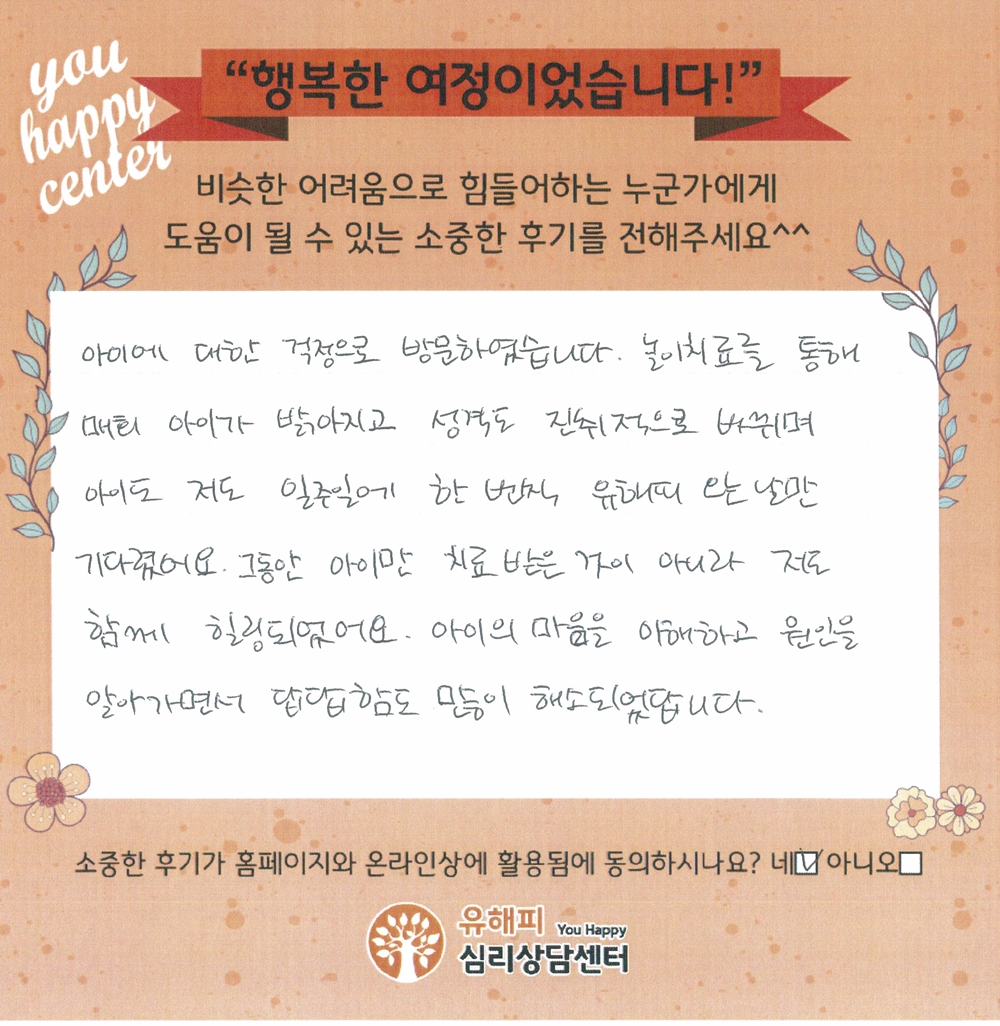 you
happy
center
“행복한 여정이었습니다!”
비슷한 어려움으로 힘들어하는 누군가에게
도움이 될 수 있는 소중한 후기를 전해주세요^^
아이에 대한 걱정으로 방문하였습니다. 놀이치료를 통해
매회 아이가 밝아지고 성격도 진취적으로 바뀌며
아이도 저도 일주일에 한 번씩 유해피 오는 날만
기다렸어요. 그동안 아이만 치료 받은 것이 아니라 저도
함께 힐링되었어요. 아이의 마음을 이해하고 원인을
알아가면서 답답함도 많이 해소되었답니다.
소중한 후기가 홈페이지와 온라인상에 활용됨에 동의하시나요? 네☑ 아니오☐
유해피 You Happy
심리상담센터